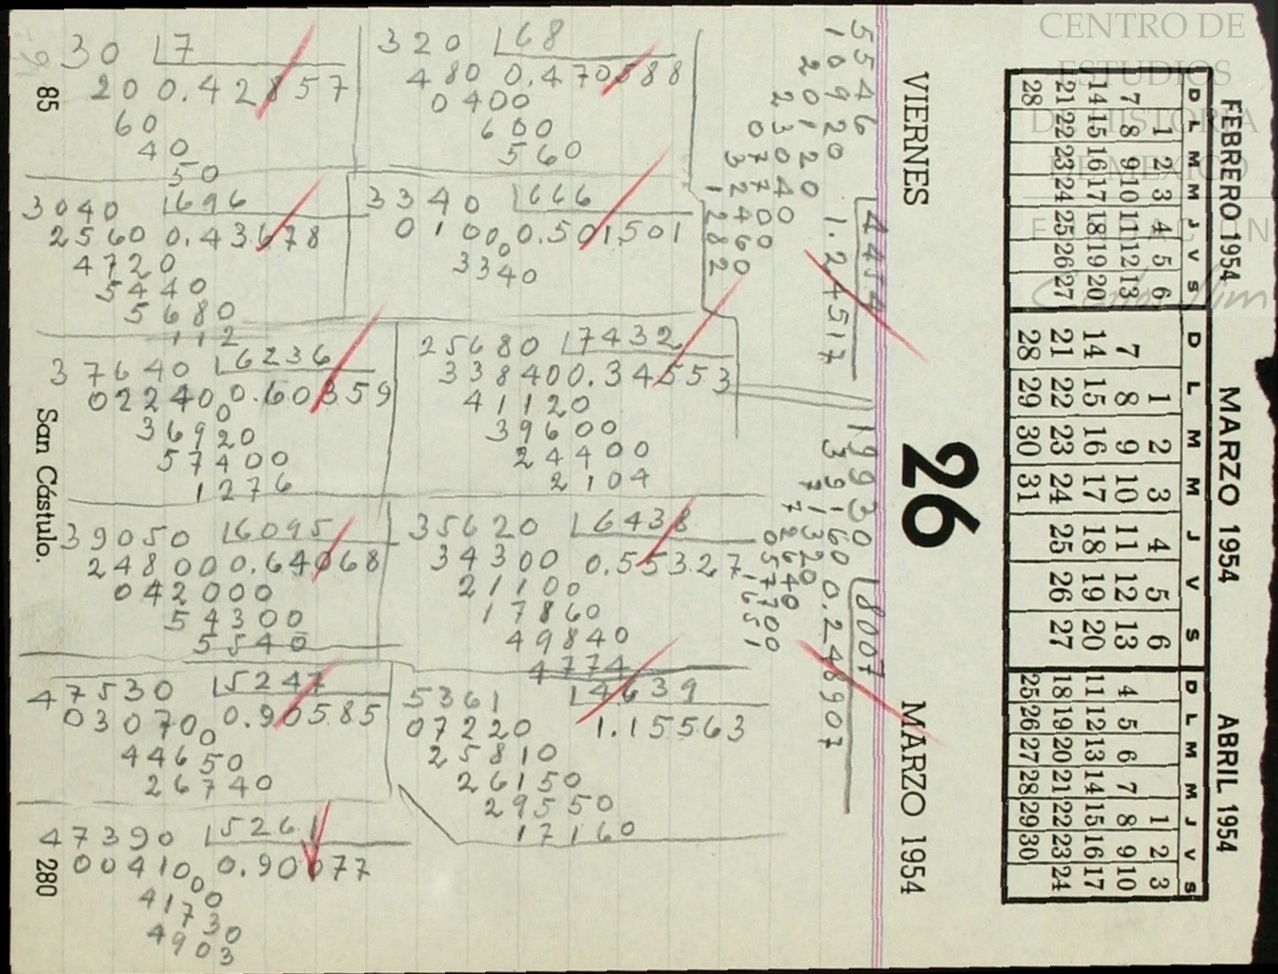 30 7
20 0.42857
60
40
50
320 68
480 0.470588
0400
600
560
3040 696
2560 0.43678
4720
5440
5680
112
3340 666
01000 0.501501
3340
37640 6236
022400 0.60359
36920
57400
1276
25680 7432
33840 0.34553
41120
39600
24400
2104
39050 6095
24800 0.64068
042000
54300
5540
35620 6438
34300 0.55327
21100
17860
49840
4774
47530 5247
030700 0.90585
44650
26740
5361 4639
07220 1.15563
25810
26150
29550
17160
47390 5261
0041000 0.90077
41730
4903
5546 4454
10920 1.24517
20120
23040
07700
32460
1282
19930 8007
39160 0.248907
71320
72640
057700
1651
85
San Cástulo.
280
VIERNES
26
MARZO 1954
FEBRERO 1954
D L M M J V S
1 2 3 4 5 6
7 8 9 10 11 12 13
14 15 16 17 18 19 20
21 22 23 24 25 26 27
28
MARZO 1954
D L M M J V S
1 2 3 4 5 6
7 8 9 10 11 12 13
14 15 16 17 18 19 20
21 22 23 24 25 26 27
28 29 30 31
ABRIL 1954
D L M M J V S
1 2 3
4 5 6 7 8 9 10
11 12 13 14 15 16 17
18 19 20 21 22 23 24
25 26 27 28 29 30
CENTRO DE
ESTUDIOS
DE HISTORIA
DE MEXICO